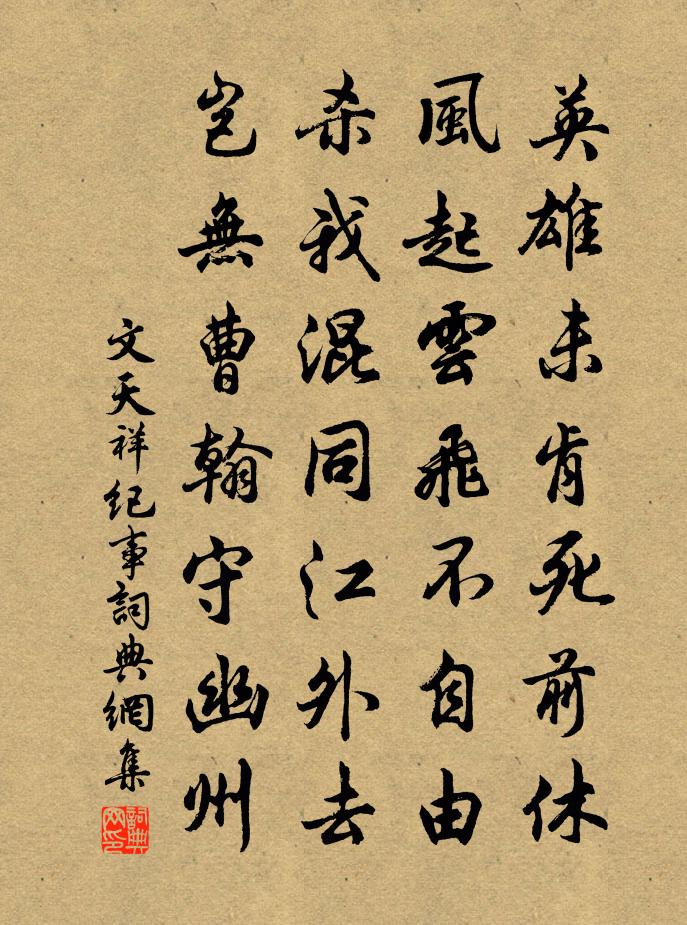 英雄未肯死前休
風起雲飛不自由
杀我混同江外去
豈無曹翰守幽州
文天祥纪事詞典網集
詞典
网印